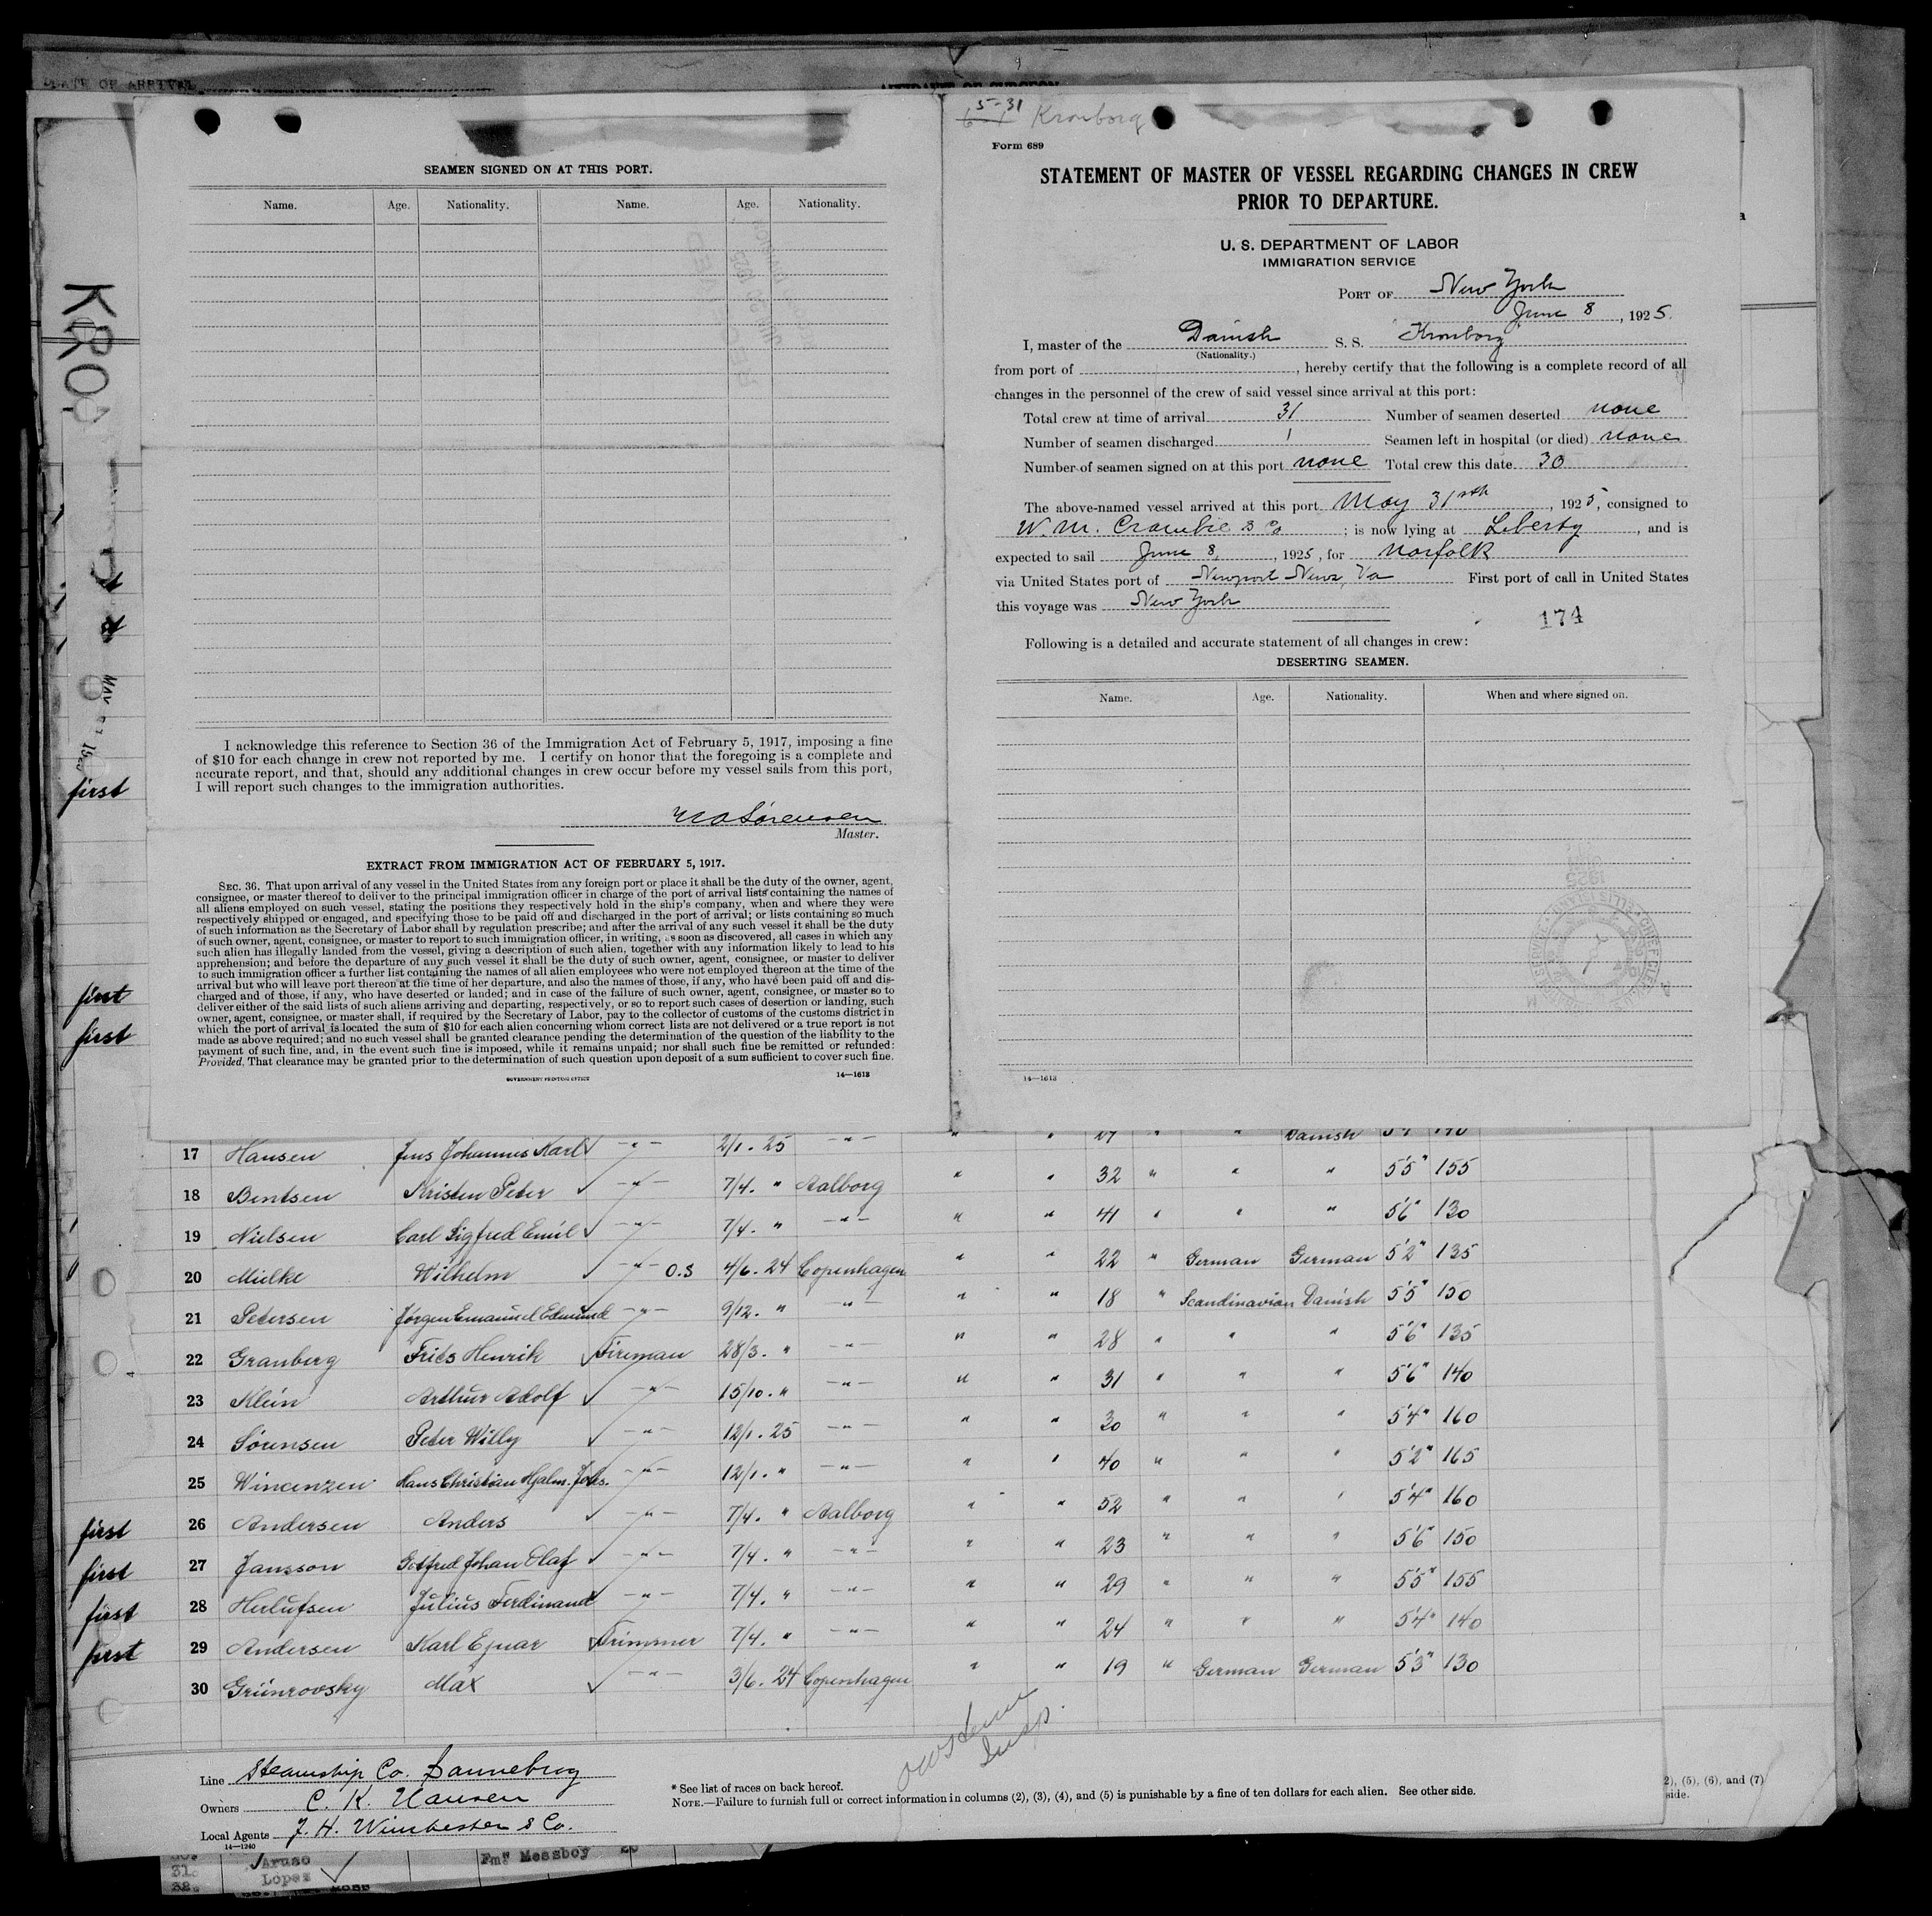 DATE OF ARRIVAL
AFFIDAVIT OF SURGEON
SEAMEN SIGNED ON AT THIS PORT.
Name. Age. Nationality. Name. Age. Nationality.
I acknowledge this reference to Section 36 of the Immigration Act of February 5, 1917, imposing a fine
of $10 for each change in crew not reported by me. I certify on honor that the foregoing is a complete and
accurate report, and that, should any additional changes in crew occur before my vessel sails from this port,
I will report such changes to the immigration authorities.
Sørensen
Master.
EXTRACT FROM IMMIGRATION ACT OF FEBRUARY 5, 1917.
SEC. 36. That upon arrival of any vessel in the United States from any foreign port or place it shall be the duty of the owner, agent,
consignee, or master thereof to deliver to the principal immigration officer in charge of the port of arrival lists containing the names of
all aliens employed on such vessel, stating the positions they respectively hold in the ship's company, when and where they were
respectively shipped or engaged, and specifying those to be paid off and discharged in the port of arrival; or lists containing so much
of such information as the Secretary of Labor shall by regulation prescribe; and after the arrival of any such vessel it shall be the duty
of such owner, agent, consignee, or master to report to such immigration officer, in writing, as soon as discovered, all cases in which any
such alien has illegally landed from the vessel, giving a description of such alien, together with any information likely to lead to his
apprehension; and before the departure of any such vessel it shall be the duty of such owner, agent, consignee, or master to deliver
to such immigration officer a further list containing the names of all alien employees who were not employed thereon at the time of the
arrival but who will leave port thereon at the time of her departure, and also the names of those, if any, who have been paid off and dis-
charged and of those, if any, who have deserted or landed; and in case of the failure of such owner, agent, consignee, or master so to
deliver either of the said lists of such aliens arriving and departing, respectively, or so to report such cases of desertion or landing, such
owner, agent, consignee, or master shall, if required by the Secretary of Labor, pay to the collector of customs of the customs district in
which the port of arrival is located the sum of $10 for each alien concerning whom correct lists are not delivered or a true report is not
made as above required; and no such vessel shall be granted clearance pending the determination of the question of the liability to the
payment of such fine, and, in the event such fine is imposed, while it remains unpaid; nor shall such fine be remitted or refunded:
Provided, That clearance may be granted prior to the determination of such question upon deposit of a sum sufficient to cover such fine.
GOVERNMENT PRINTING OFFICE 14—1613
5-31 Kronborg
Form 689
STATEMENT OF MASTER OF VESSEL REGARDING CHANGES IN CREW
PRIOR TO DEPARTURE.
U. S. DEPARTMENT OF LABOR
IMMIGRATION SERVICE
PORT OF New York
June 8, 1925.
I, master of the Danish S. S. Kronborg
(Nationality.)
from port of , hereby certify that the following is a complete record of all
changes in the personnel of the crew of said vessel since arrival at this port:
Total crew at time of arrival 31 Number of seamen deserted none
Number of seamen discharged 1 Seamen left in hospital (or died) none
Number of seamen signed on at this port none Total crew this date 30
The above-named vessel arrived at this port May 31sth, 1925, consigned to
W. M. Crombie & Co; is now lying at Liberty, and is
expected to sail June 8, 1925, for Norfolk
via United States port of Newport News, Va First port of call in United States
this voyage was New York
174
Following is a detailed and accurate statement of all changes in crew:
DESERTING SEAMEN.
Name. Age. Nationality. When and where signed on.
14—1613
first
first
first
17 Hansen Jens Johannes Karl -"- 2/1. 25 -"- " " 27 " " Danish
18 Bentsen Kristen Peter -"- 7/4. " Aalborg " " 32 " " " 5'5" 155
19 Nielsen Carl Sigfred Emil -"- 7/4. " -"- " " 41 " " " 5'6" 130
20 Mielke Wilhelm -"- O.S 4/6. 24 Copenhagen " " 22 " German German 5'2" 135
21 Petersen Jørgen Emanuel Edmund -"- 9/12. " -"- " " 18 " Scandinavian Danish 5'5" 150
22 Granberg Frits Henrik Fireman 28/3. " -"- " " 28 " " " 5'6" 135
23 Klein Arthur Adolf -"- 15/10. " -"- " " 31 " " " 5'6" 140
24 Sørensen Peter Willy -"- 12/1. 25 -"- " " 30 " " " 5'4" 160
25 Wincenzen Hans Christian Hjalm. Johs. -"- 12/1. " -"- " " 40 " " " 5'2" 165
first 26 Andersen Anders -"- 7/4. " Aalborg " " 52 " " " 5'4" 160
first 27 Jansson Gotfred Johan Olaf -"- 7/4. " -"- " " 23 " " " 5'6" 150
first 28 Herlufsen Julius Ferdinand -"- 7/4. " -"- " " 29 " " " 5'5" 155
first 29 Andersen Karl Ejnar Trimmer 7/4. " -"- " " 24 " " " 5'4" 140
30 Grünrovsky Max -"- 3/6. 24 Copenhagen " " 19 " German German 5'3" 130
Line Steamship Co. Dannebrog
Owners C. K. Hansen
Local Agents J. H. Winchester & Co.
14—1240
* See list of races on back hereof.
NOTE.—Failure to furnish full or correct information in columns (2), (3), (4), and (5) is punishable by a fine of ten dollars for each alien. See other side.
2), (5), (6), and (7)
side.
31. Aruso Fm" Messboy
32. Lopez